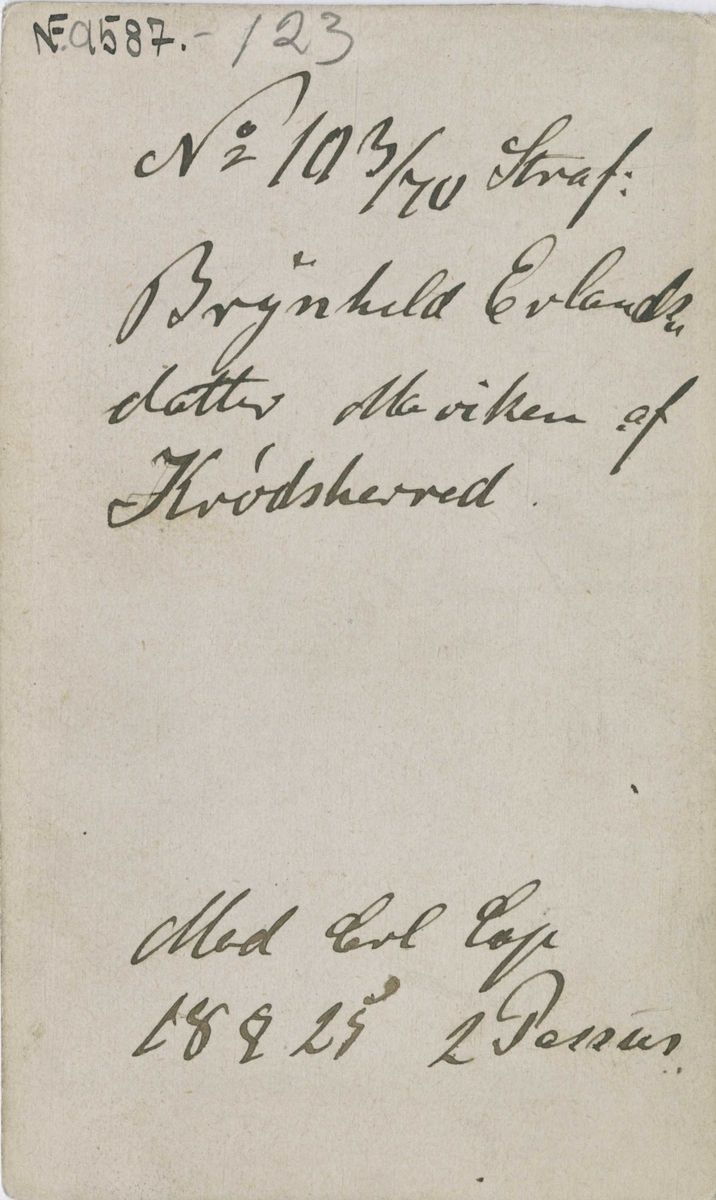 NF.9587.- 123
No 103/70 Straf:
Brÿnhild Erlands
datter Maviken af
Krødsherred.
Med Crl Cap
18 § 25 2 Passus.